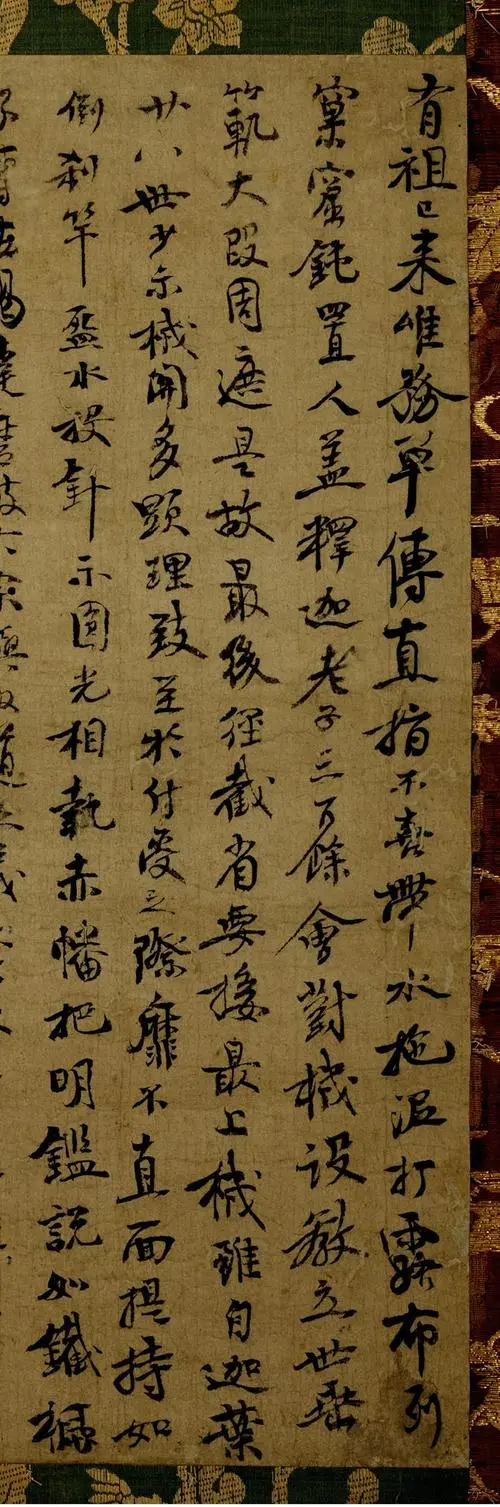 有祖已来唯務單傳直指不喜帶水拖泥打露布列
窠窟鈍置人蓋釋迦老子三百餘會對機設教立世垂
範大段周遮是故最後徑截省要接最上機雖自迦葉
廿八世少示機關多顯理致至於付受之際靡不直面提持如
倒刹竿盋水投針示圓光相執赤幡把明鑑説如鐵橛